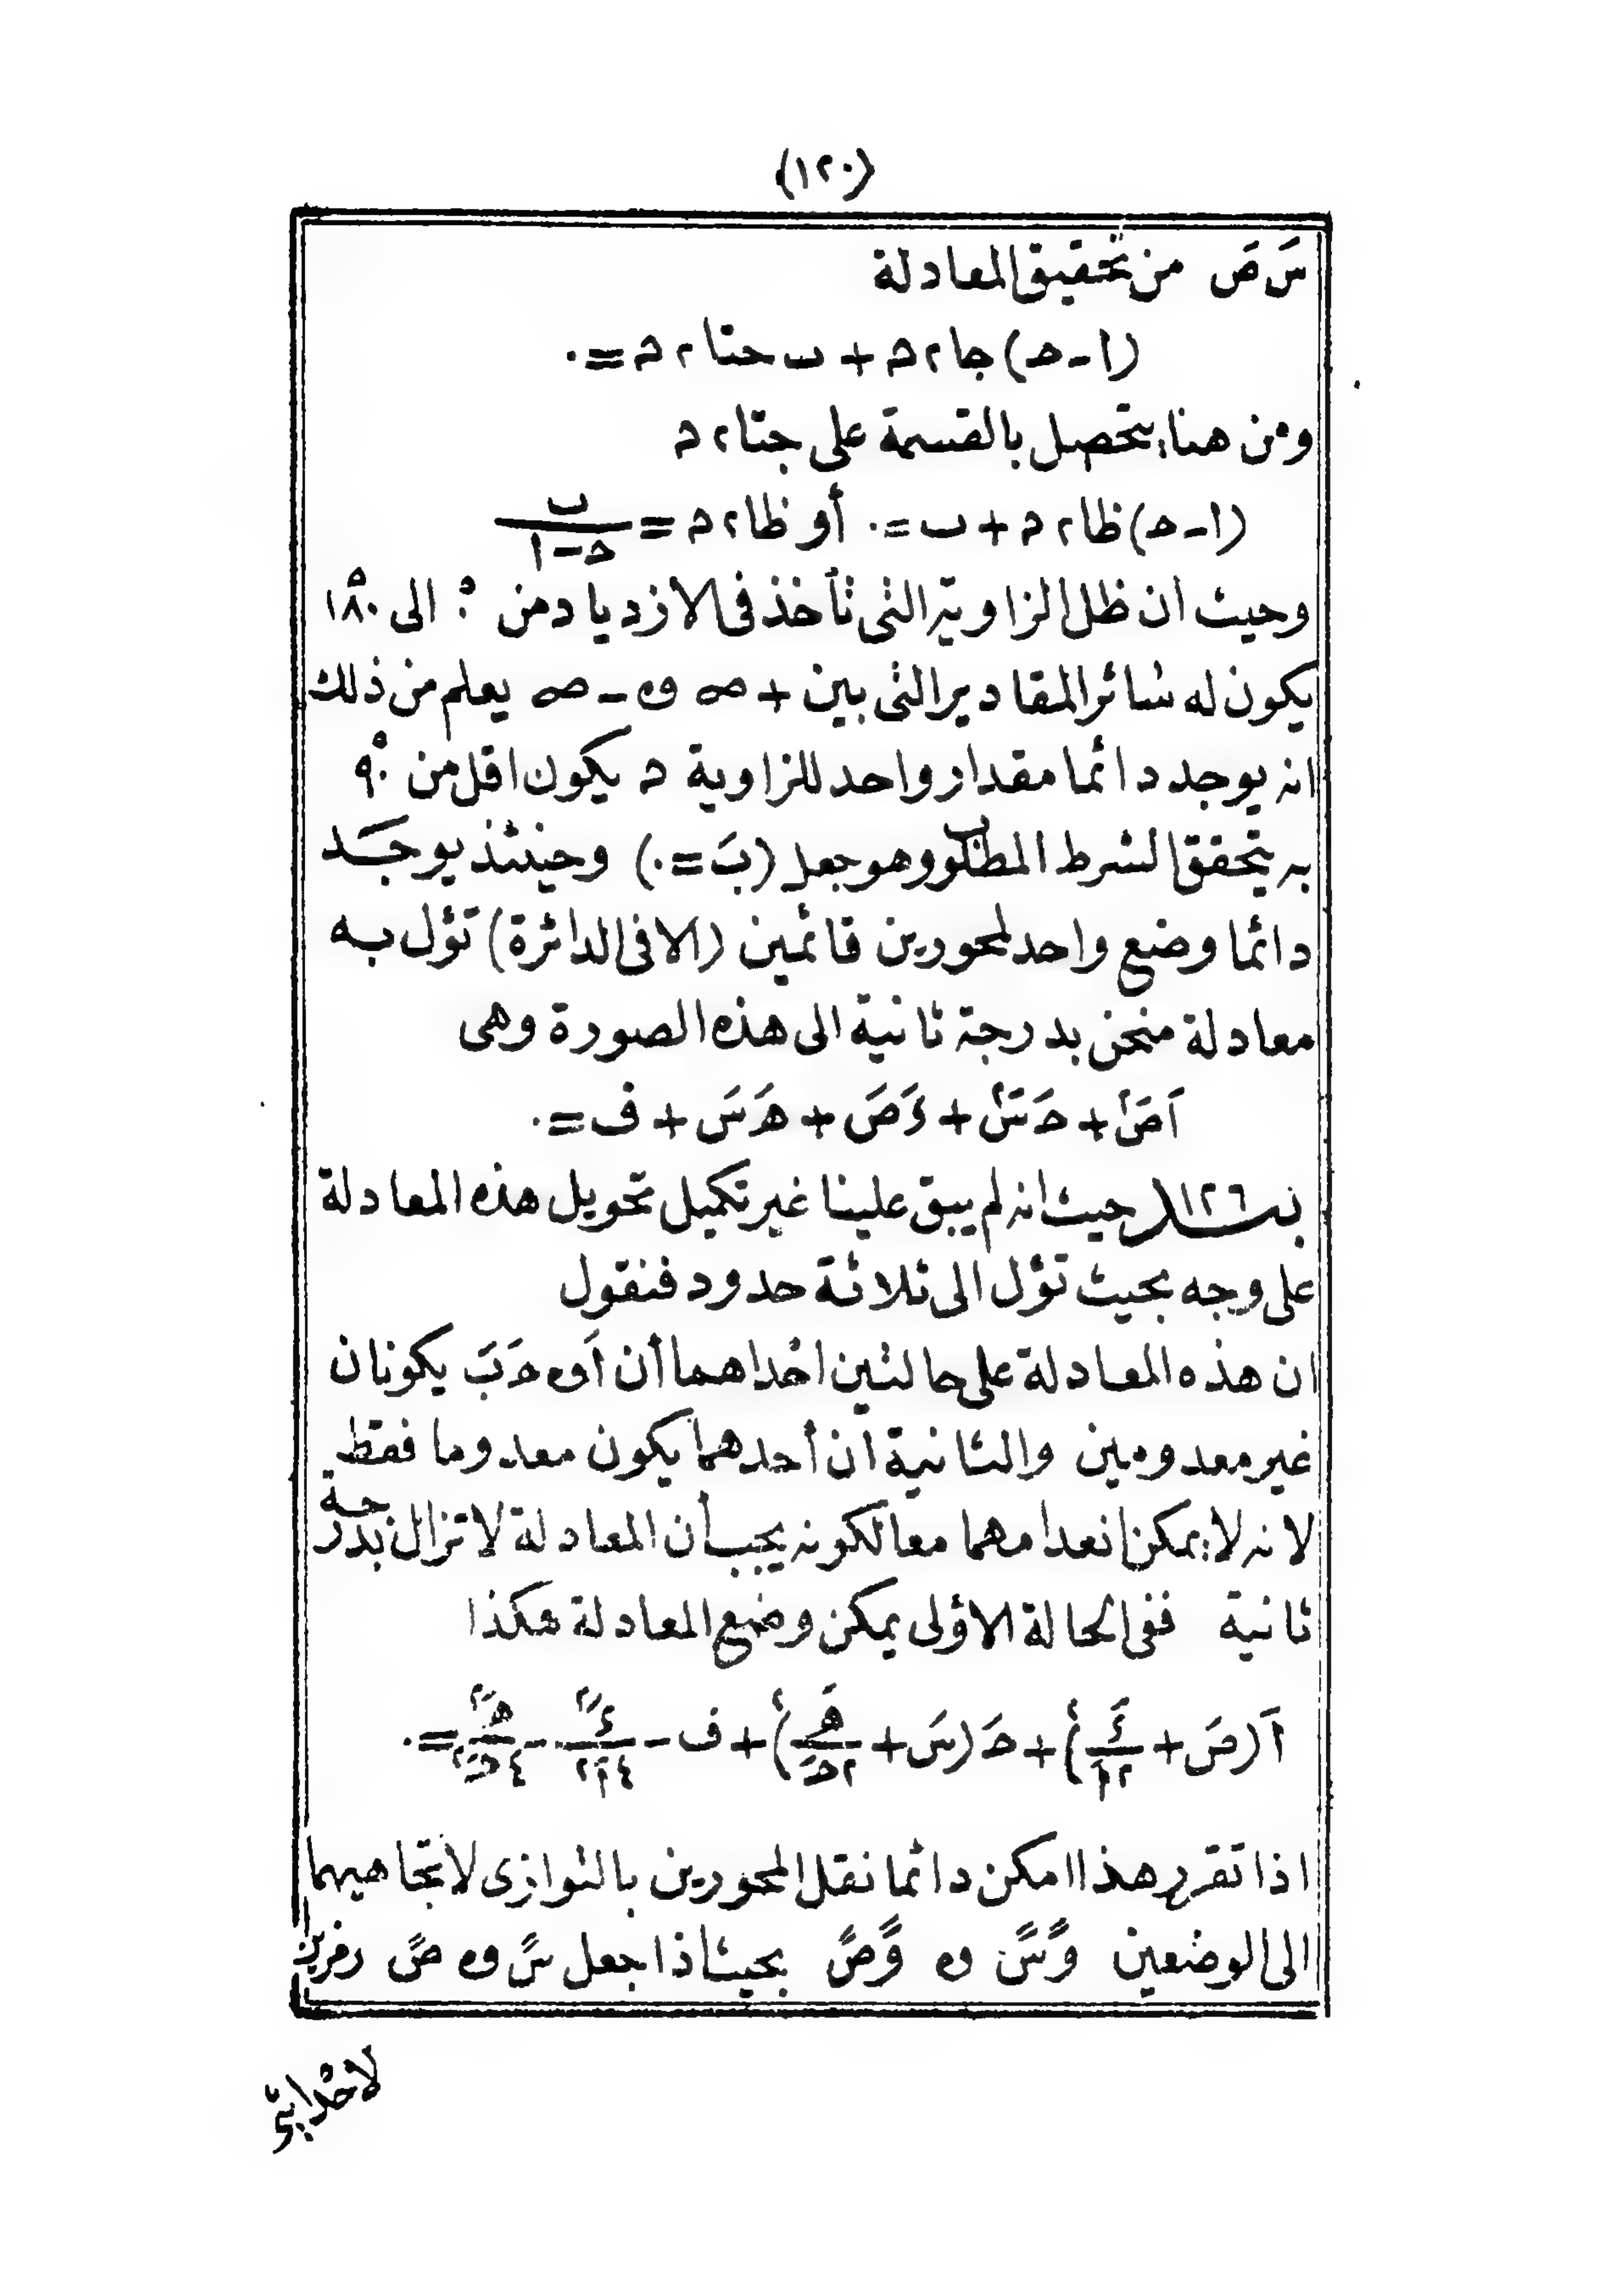 (١٢٠)
سَ صَ من تحقيق المعادلة
(ا-ح) جا٢م + ب حتا٢م = ٠
ومن هنا يتحصل بالقسمة على جتا٢م
(ا-ح) ظا٢م + ب = ٠ أو ظا٢م = ب/(ح-ا)
وحيث ان ظل الزاوية التى تأخذ فى الازدياد من ٠° الى ١٨٠°
يكون له سائر المقادير التى بين +∞ و -∞ يعلم من ذلك
انه يوجد دائما مقدار واحد للزاوية م يكون اقل من ٩٠°
به يتحقق الشرط المطلوب وهو جعل (بَ = ٠) وحينئذ يوجد
دائما وضع واحد لمحورين قائمين (الا فى الدائرة) تؤل به
معادلة منحن بدرجة ثانية الى هذه الصورة وهى
اَصَ٢ + حَسَ٢ + ءَصَ + هَسَ + ف = ٠
بند ١٢٦ حيث انه لم يبق علينا غير تكميل تحويل هذه المعادلة
على وجه بحيث تؤل الى ثلاثة حدود فنقول
ان هذه المعادلة على حالتين احداهما أن اَ و حَ بَ يكونان
غير معدومين والثانية ان أحدهما يكون معدوما فقط
لانه لا يمكن انعدامهما معا لكونه يجب أن المعادلة لا تزال بدرجة
ثانية ففى الحالة الاولى يمكن وضع المعادلة هكذا
اَ(صَ + ءَ/٢اَ)٢ + حَ(سَ + هَ/٢حَ)٢ + ف - ءَ٢/٤اَ٢ - هَ٢/٤حَ٢ = ٠
اذا تقرر هذا امكن دائما نقل المحورين بالتوازى لاتجاهيهما
الى الوضعين وًسً و وًصً بحيث اذا جعل سً و صً رمزين
لاحداثى